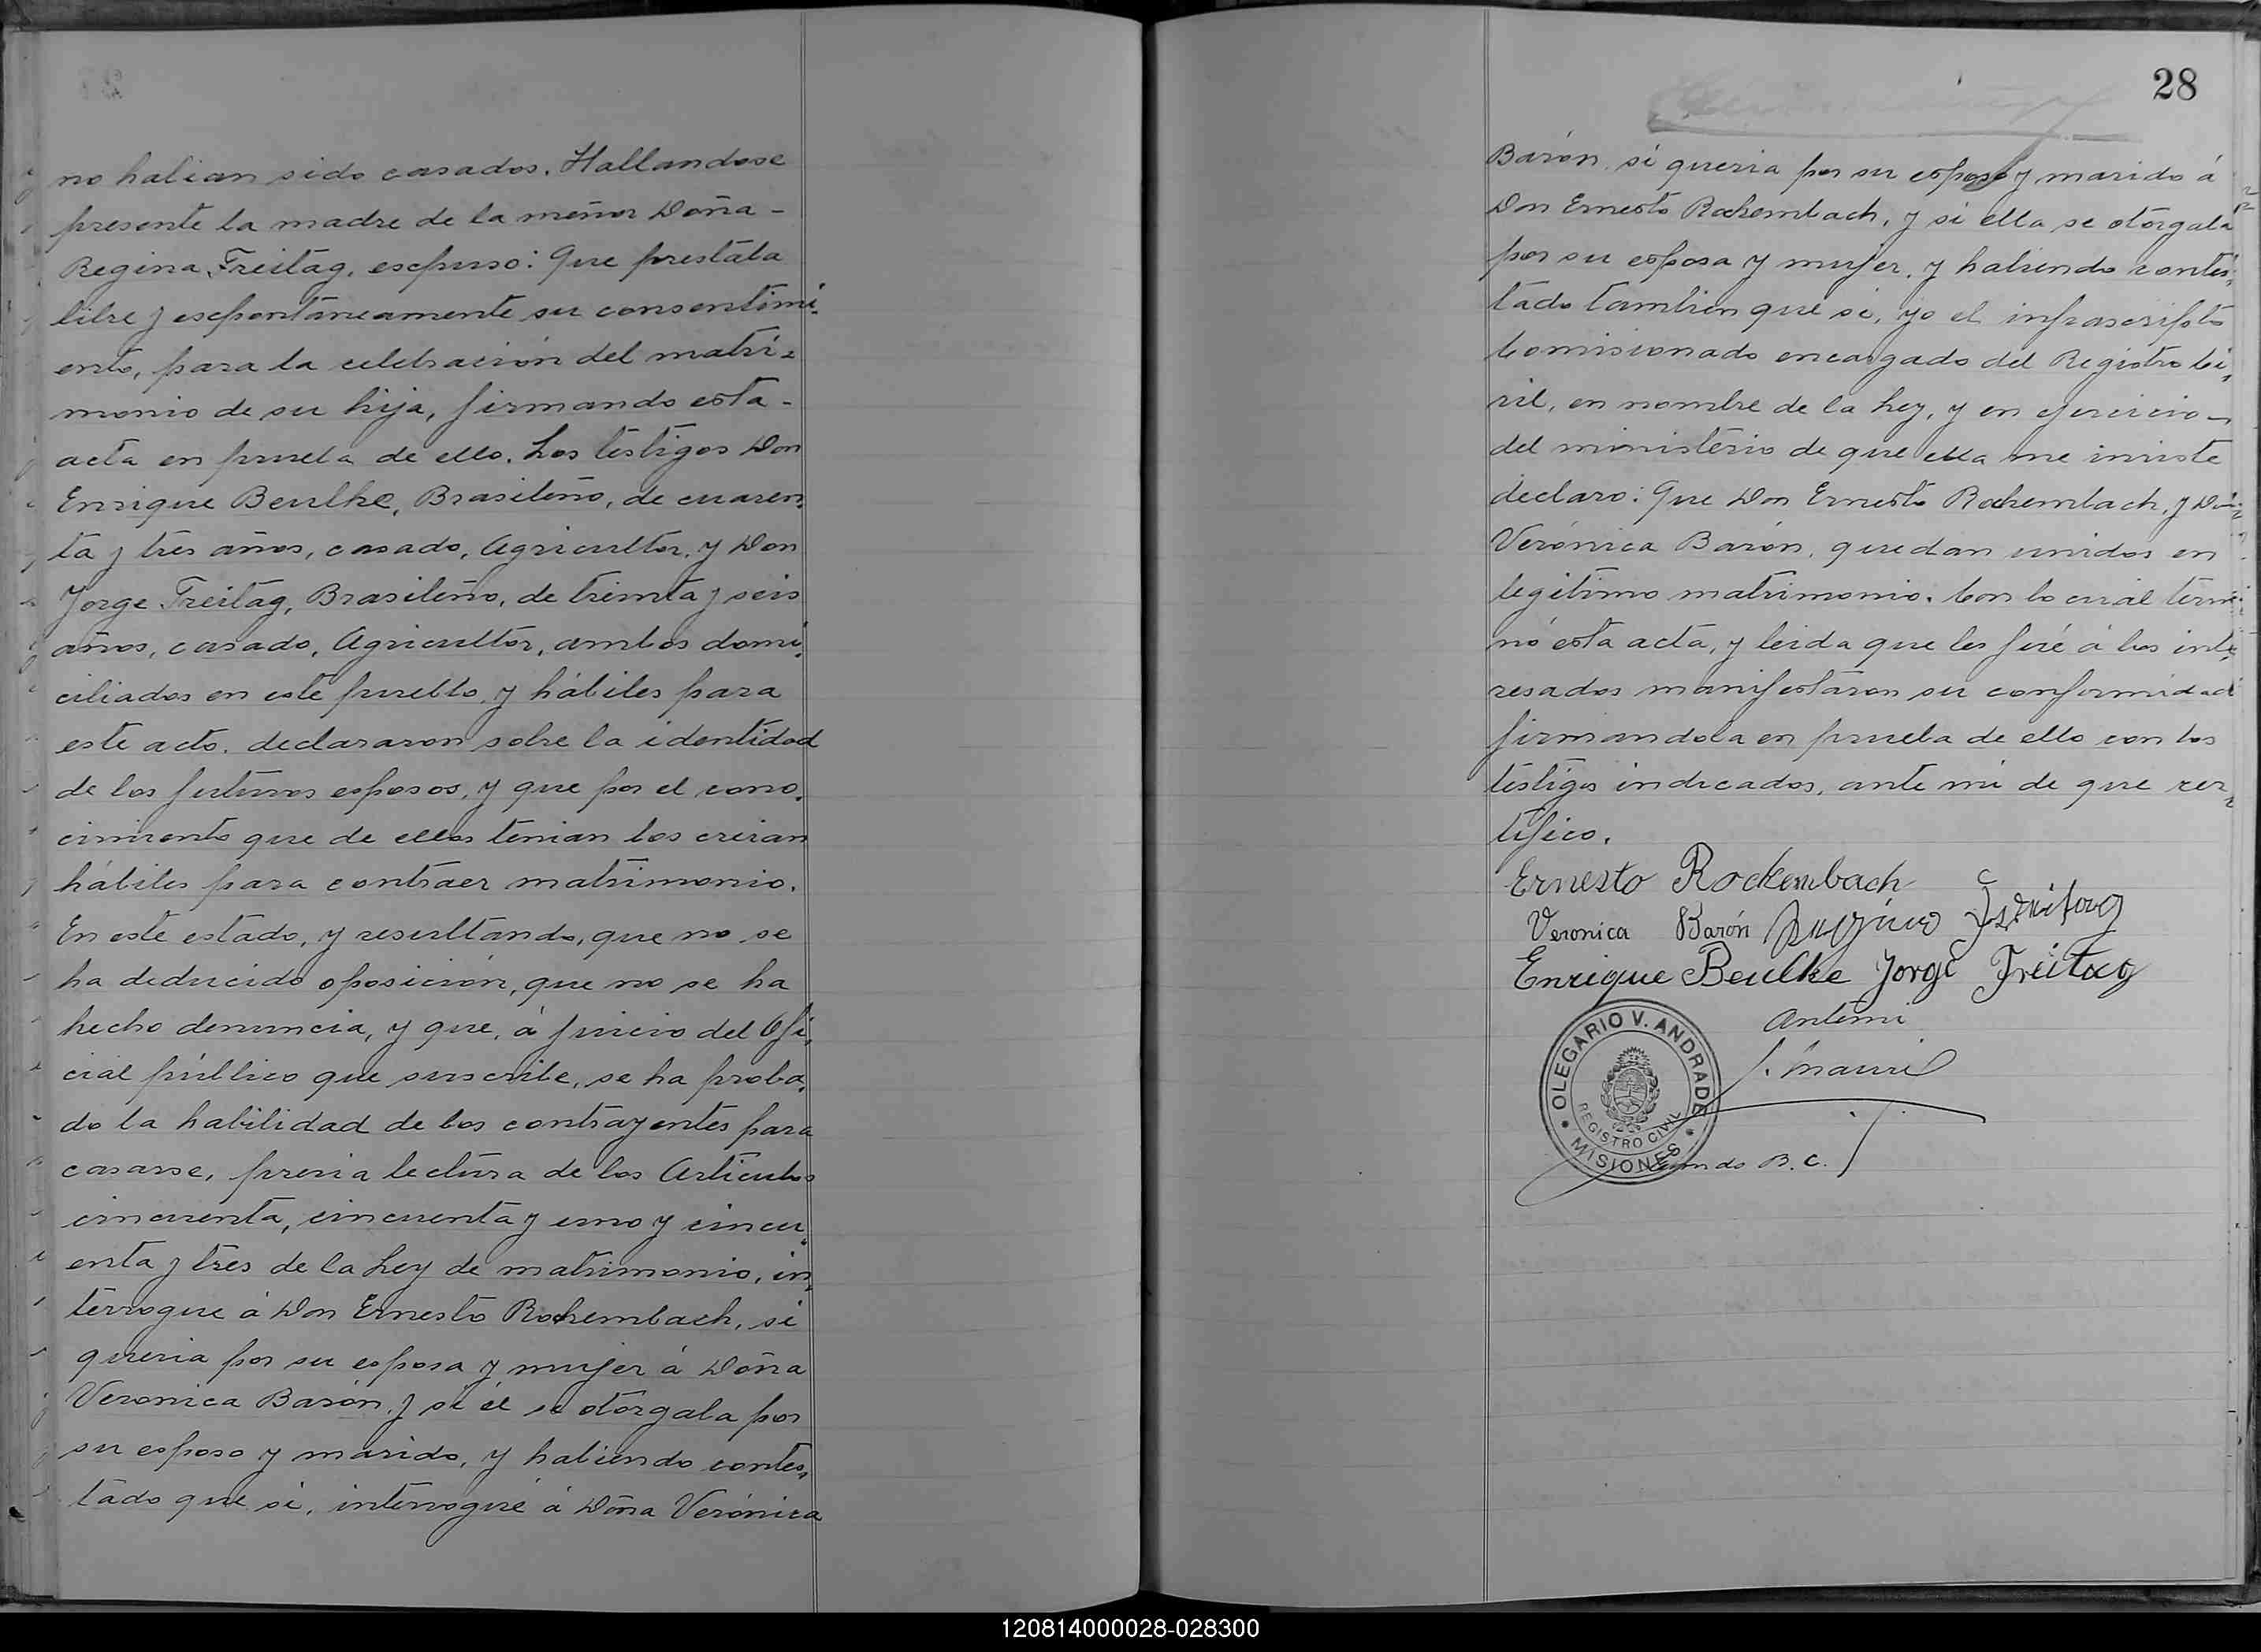 no habian sido casados. Hallandose
presente la madre de la menor Doña -
Regina Freitag, escpuso: Que prestaba
libre y escpontáneamente su consentimi-
ento, para la celebración del matri-
monio de su hija, firmando esta -
acta en prueba de ello. Los testigos Don
Enrique Beulke, Brasileño, de cuaren-
ta y tres años, casado, Agricultor, y Don
Jorge Freitag, Brasileño, de treinta y seis
años, casado, Agricultor, ambos domi-
ciliados en este pueblo, y hábiles para
este acto. declararon sobre la identidad
de los futuros esposos, y que por el cono-
cimiento que de ellos tenian los creian
hábiles para contraer matrimonio.
En este estado, y resultando, que no se
ha deducido oposición, que no se ha
hecho denuncia, y que, á juicio del Ofi-
cial público que suscribe, se ha proba-
do la habilidad de los contrayentes para
casarse, previa lectura de los Articulos
cincuenta, cincuenta y uno y cincu-
enta y tres de la Ley de matrimonio, in-
terrogue á Don Ernesto Rockembach, si
queria por su esposa y mujer á Doña
Veronica Barón, y si él se otorgaba por
su esposo y marido, y habiendo contes-
tado que si, interrogué á Doña Verónica
28
Barón si queria por su esposo y marido á
Don Ernesto Rockembach, y si ella se otorgaba
por su esposa y mujer, y habiendo contes-
tado tambien que si, yo el infrascripto
Comisionado encargado del Registro Ci-
vil, en nombre de la Ley, y en ejercicio -
del ministerio de que ella me inviste
declaro: Que Don Ernesto Rockembach, y Dña
Verónica Barón, quedan unidos en
legitimo matrimonio. Con lo cuál termi-
nó esta acta, y leida que les fué á los inte-
resados manifestaron su conformidad
firmandola en prueba de ello con los
testigos indicados, ante mi de que cer-
tifico.
Ernesto Rockembach
Veronica Barón Regina Freitag
Enrique Beulke Jorge Freitag
Antemi
OLEGARIO V. ANDRADE
REGISTRO CIVIL
MISIONES
B. C.
120814000028-028300